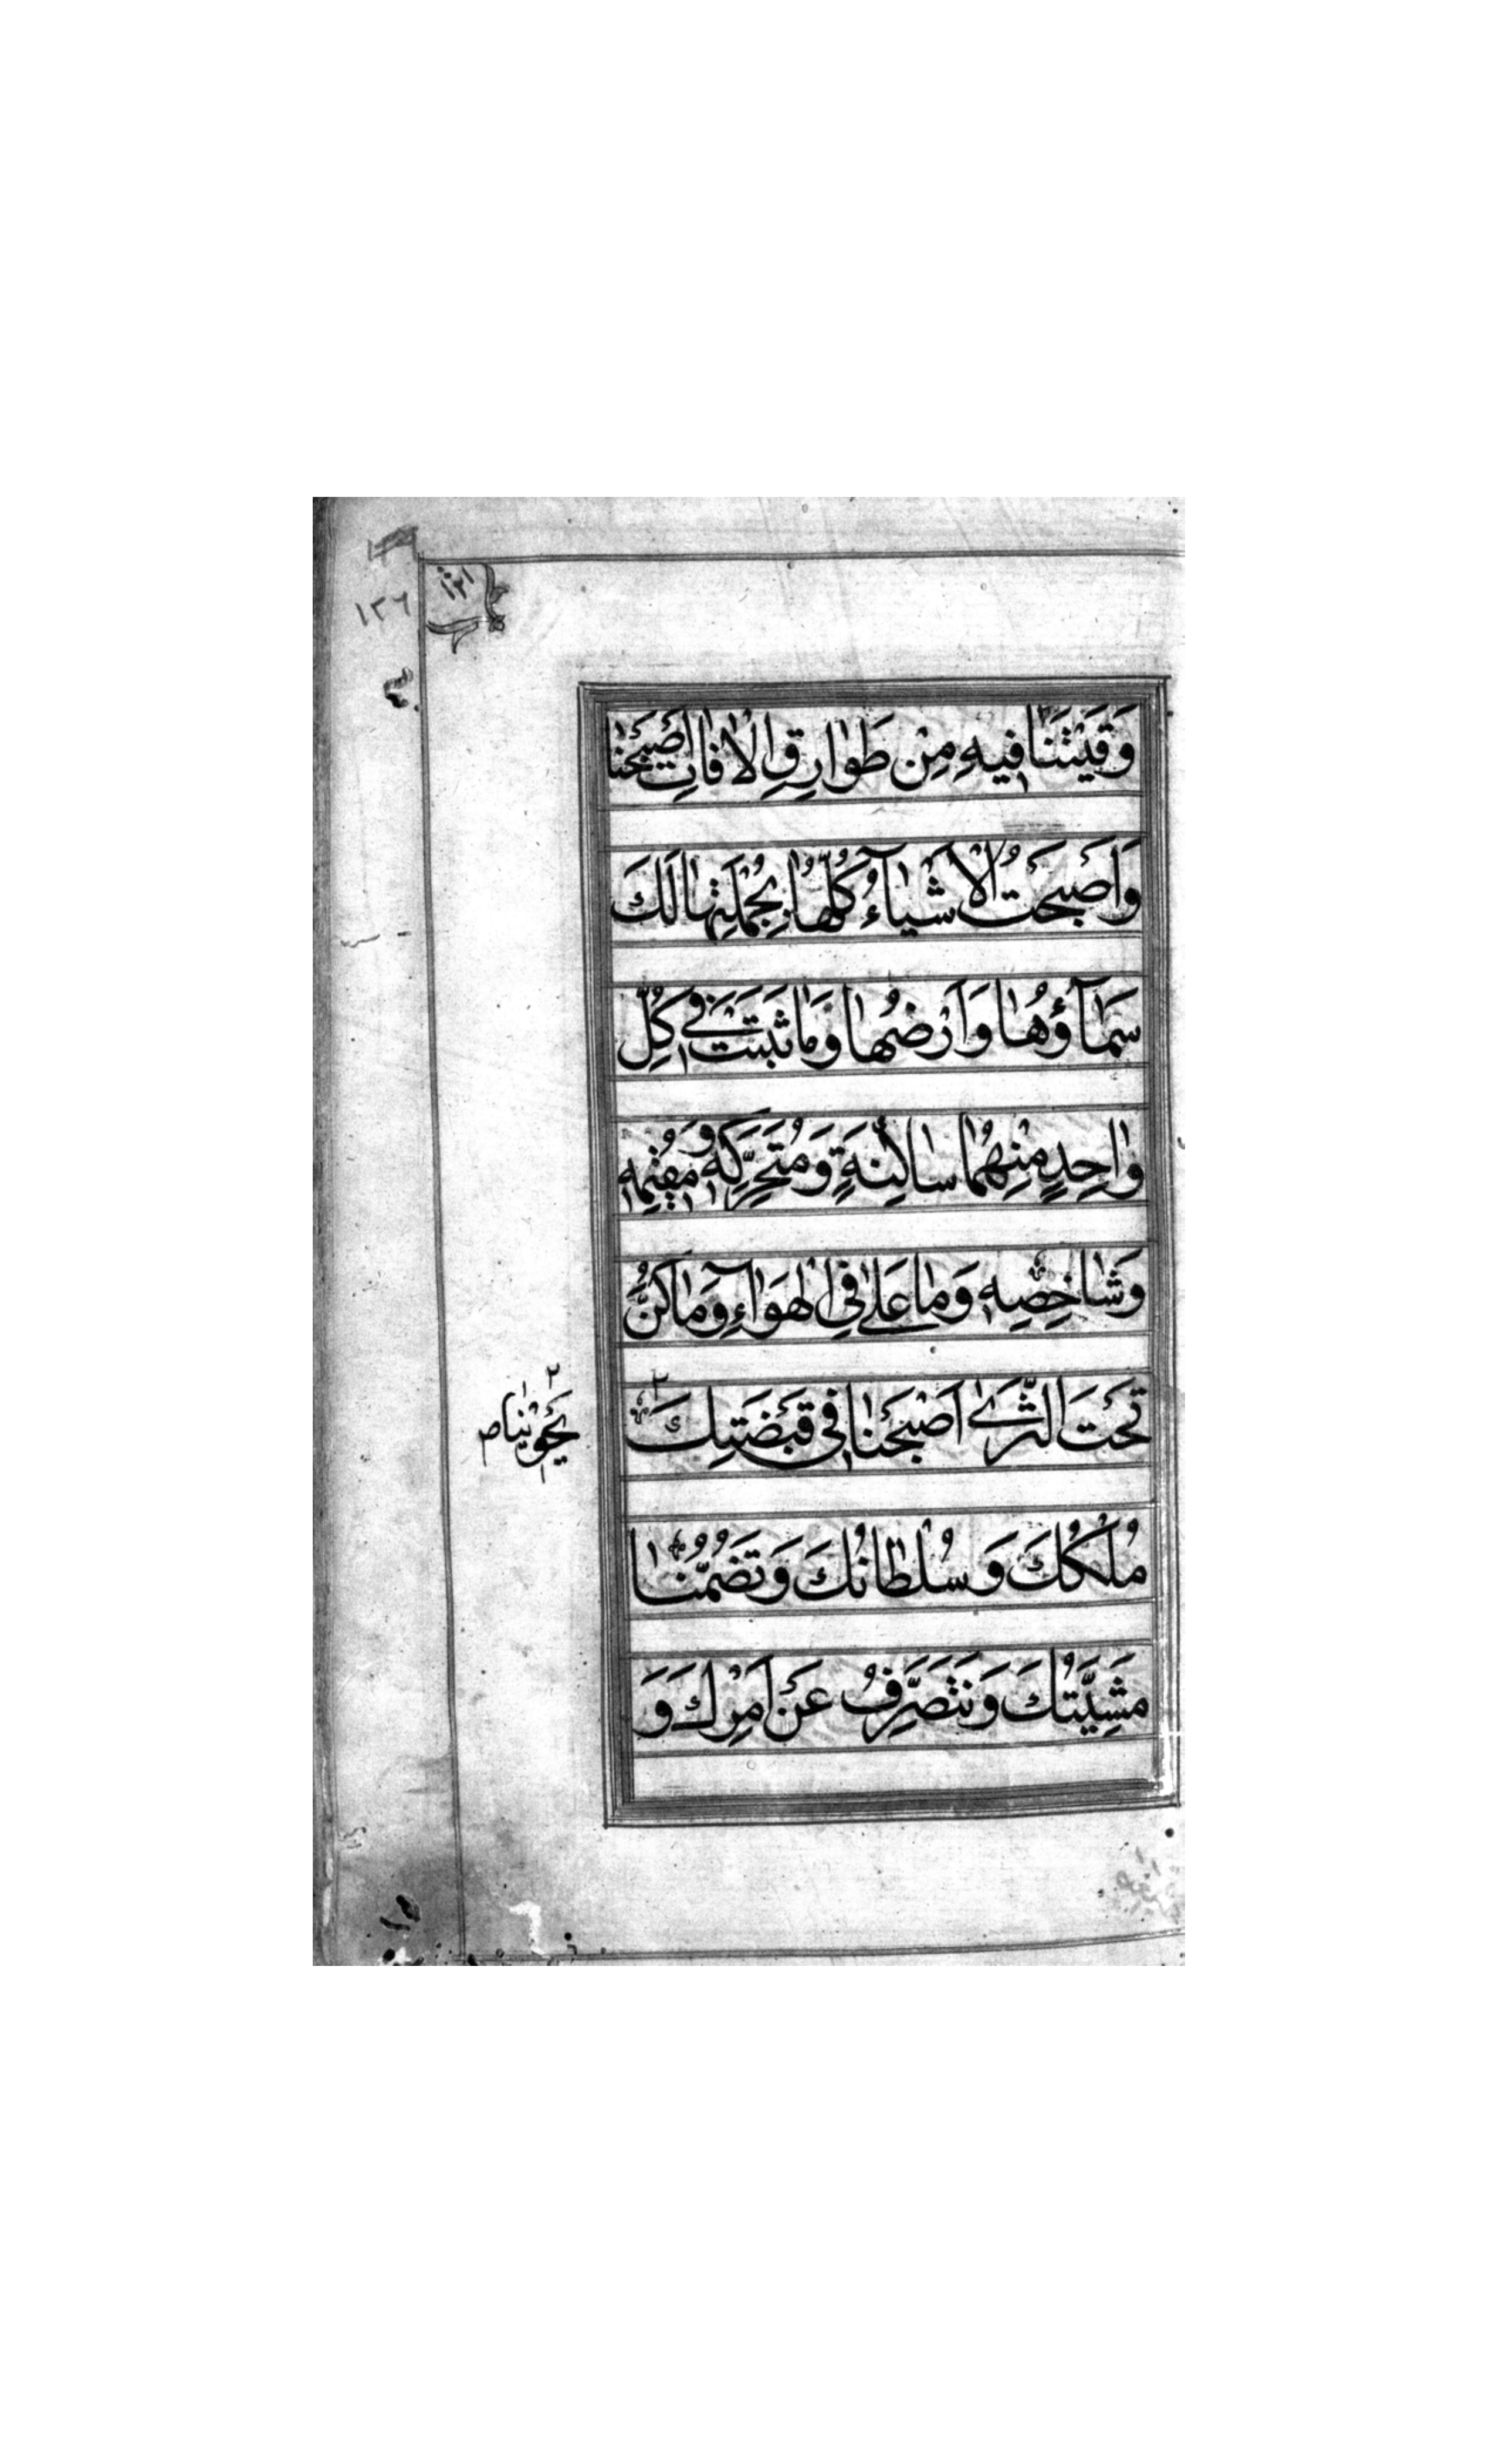 ١٢١
١٢٦
وَقَيْتَنَا فِيهِ مِنْ طَوَارِقِ الْاٰفَاتِ اَصْبَحْنَا
وَاَصْبَحَتِ الْاَشْيَاءُ كُلُّهَا بِجُمْلَتِهَا لَكَ
سَمَآؤُهَا وَاَرْضُهَا وَمَا ثَبَتَ فِي كُلِّ
وَاحِدٍ مِنْهُمَا سَاكِنَةٍ وَمُتَحَرِّكِهِ وَمُقِيمِهِ
وَشَاخِصِهِ وَمَا عَلَىٰ فِي الْهَوَآءِ وَمَا كَنَّ
تَحْتَ الثَّرَىٰ اَصْبَحْنَا فِي قَبْضَتِكَ
يَحْوِينَا
مُلْكُكَ وَسُلْطَانُكَ وَتَضُمُّنَا
مَشِيَّتُكَ وَنَتَصَرَّفُ عَنْ اَمْرِكَ وَ